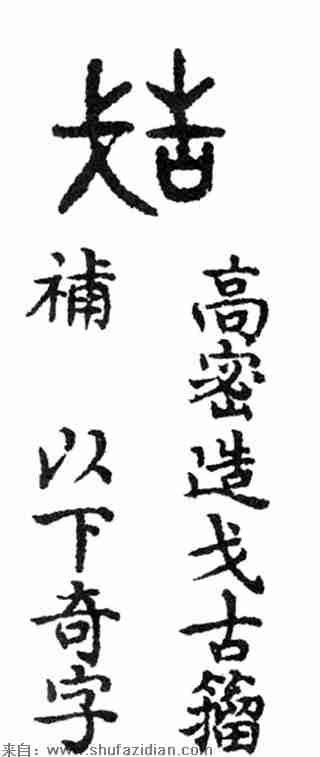 高密造戈古籀
補 以下奇字
来自：www.shufazidian.com